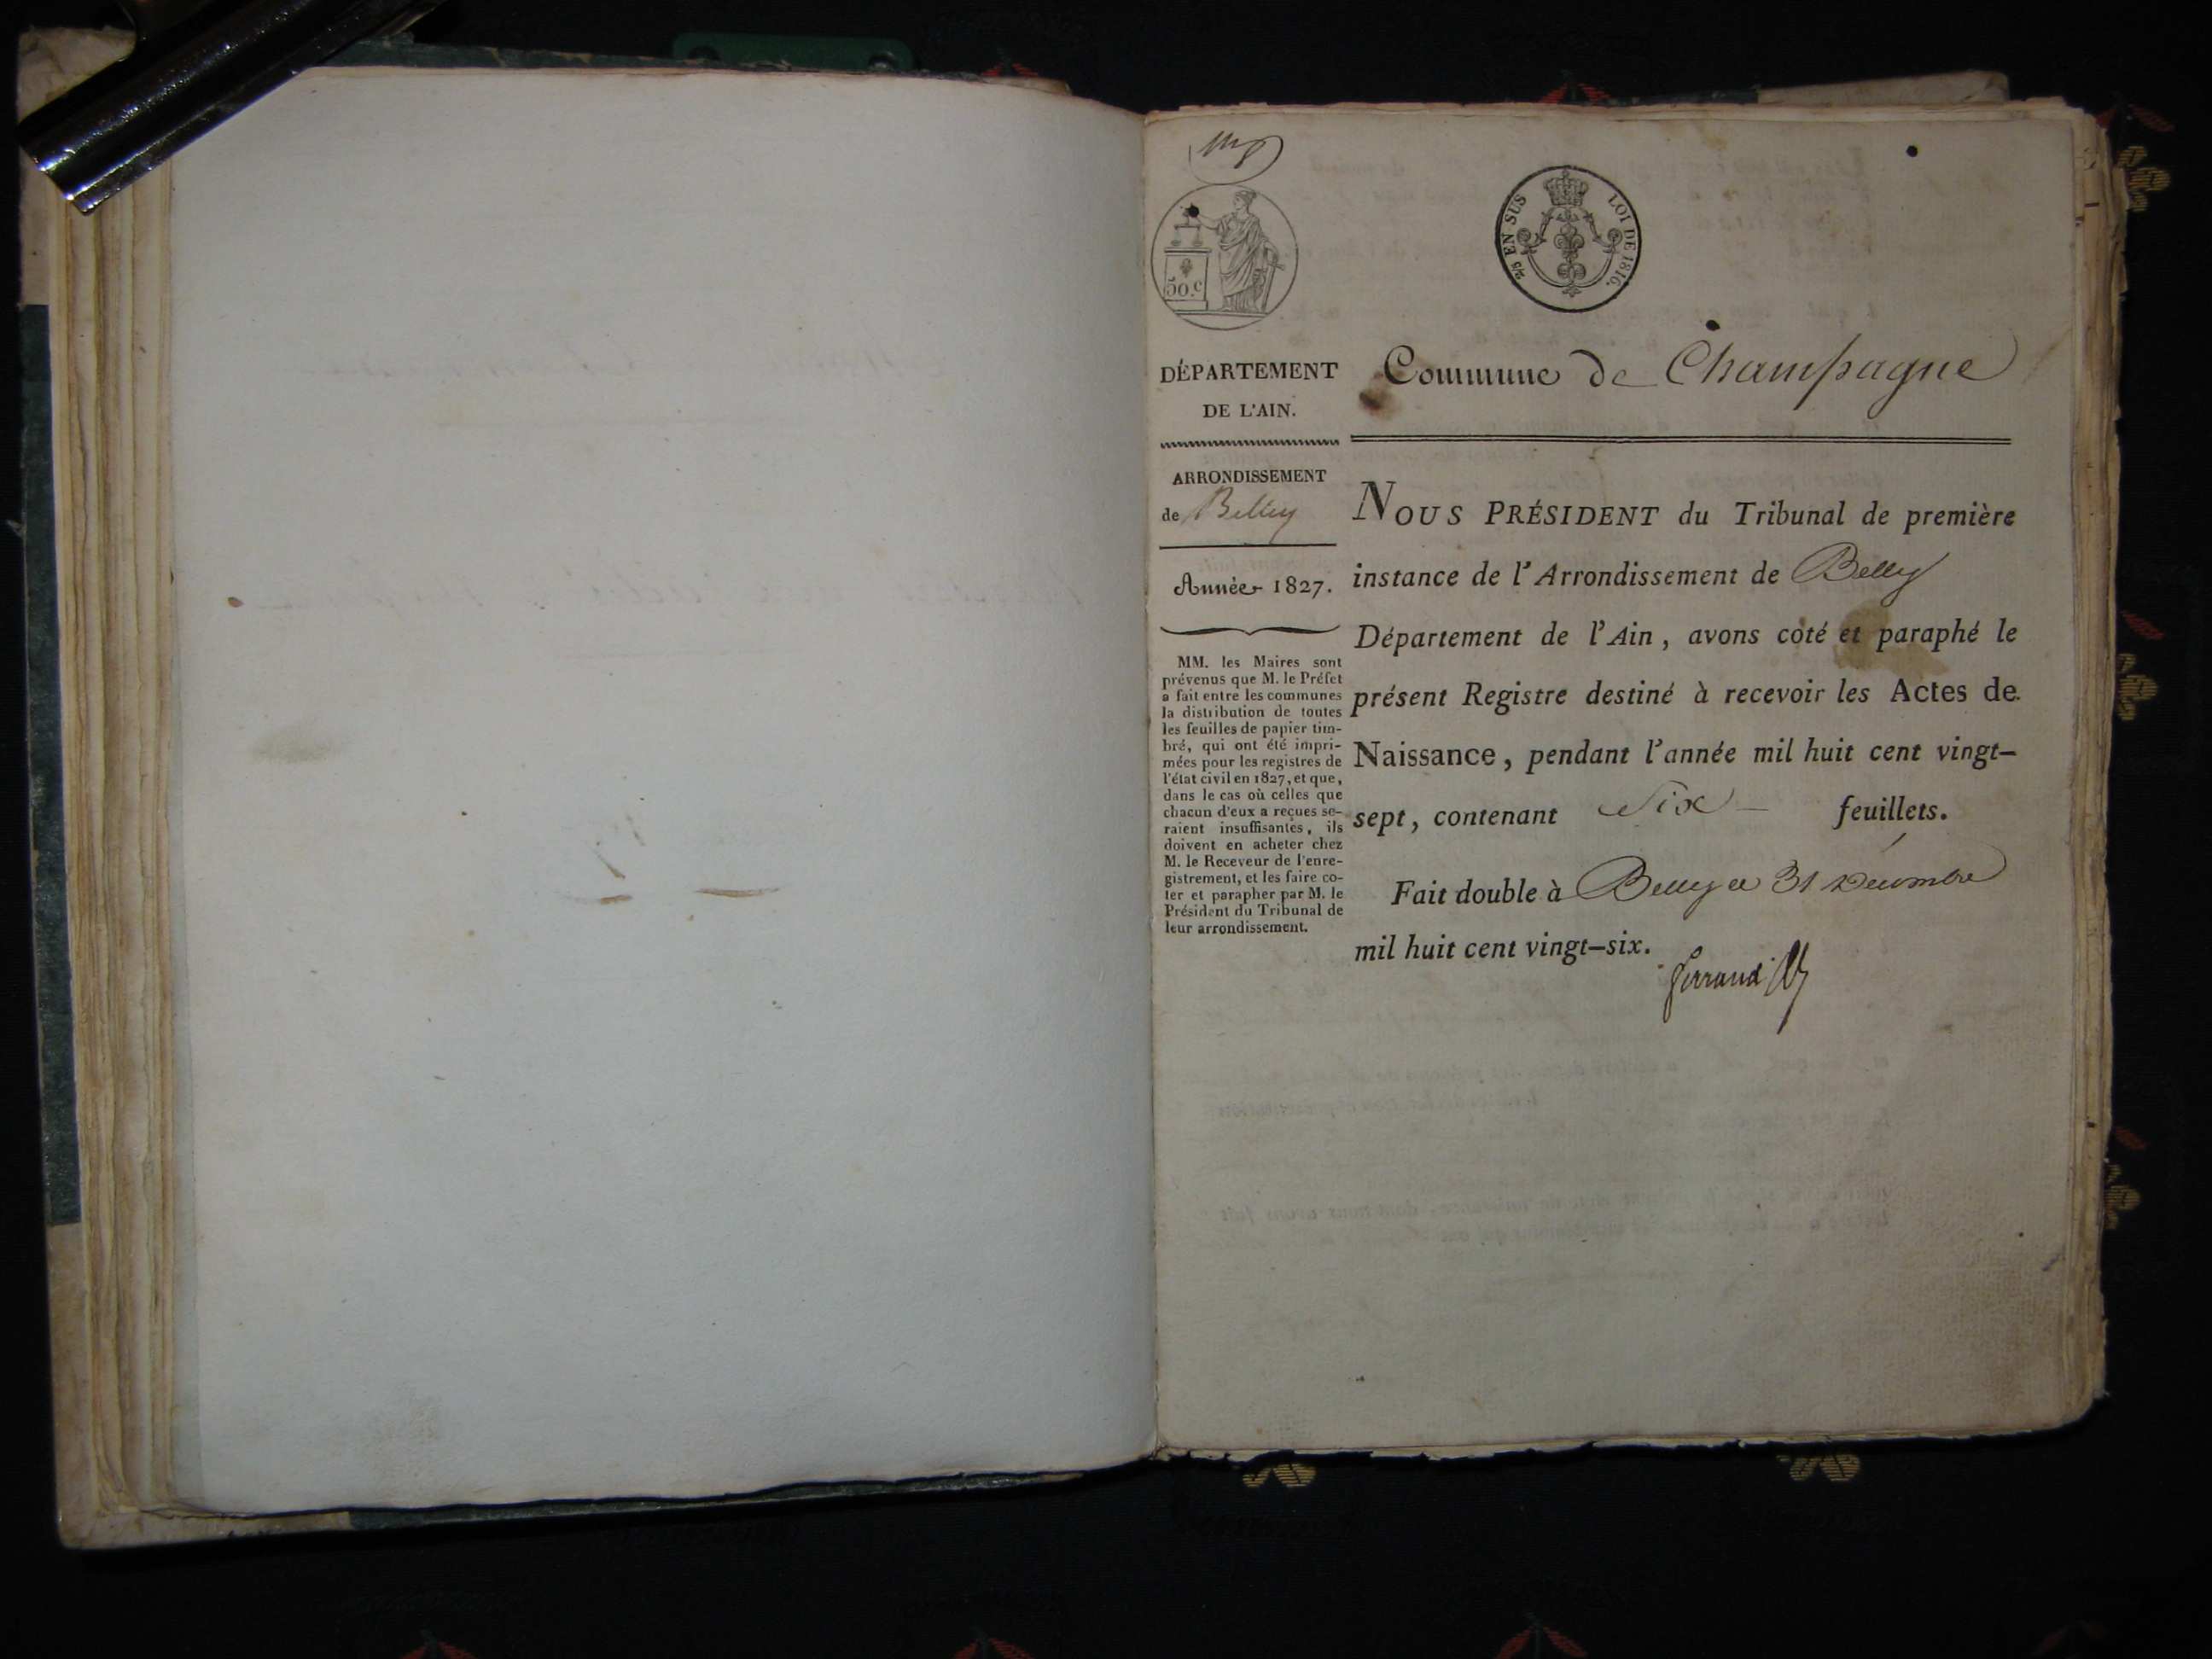 50.c
2/5 EN SUS LOI DE 1816.
DÉPARTEMENT
DE L'AIN.
ARRONDISSEMENT
de Belley
Année 1827.
MM. les Maires sont
prévenus que M. le Préfet
a fait entre les communes
la distribution de toutes
les feuilles de papier tim-
bré, qui ont été impri-
mées pour les registres de
l'état civil en 1827, et que,
dans le cas où celles que
chacun d'eux a reçues se-
raient insuffisantes, ils
doivent en acheter chez
M. le Receveur de l'enre-
gistrement, et les faire co-
ter et parapher par M. le
Président du Tribunal de
leur arrondissement.
Commune de Champagne
NOUS PRÉSIDENT du Tribunal de première
instance de l'Arrondissement de Belley
Département de l'Ain, avons coté et paraphé le
présent Registre destiné à recevoir les Actes de
Naissance, pendant l'année mil huit cent vingt-
sept, contenant Six feuillets.
Fait double à Belley ce 31 Décembre
mil huit cent vingt-six.